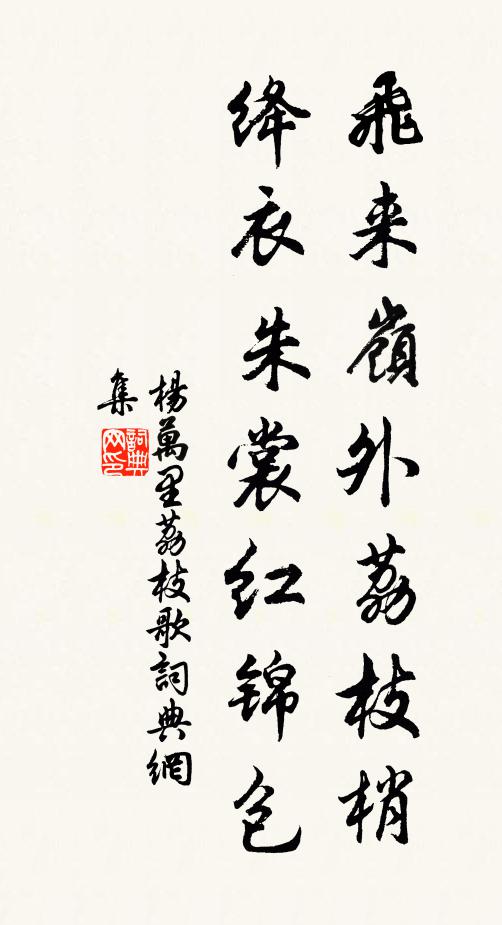 飛来嶺外荔枝梢
绛衣朱裳红锦包
楊萬里荔枝歌詞典網
集
詞典网印